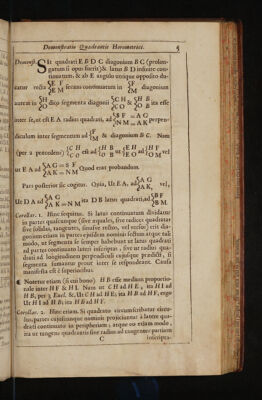 Demonstratio Quadrantis Horometrici. 5
Demonst. SIt quadrati E B D C diagonium B C (prolon-
gatum si opus fuerit) & latus B D infinite con-
tinuatum, & ab E angulo utrique opposito du-
catur recta {E F S E M secans continuatum in {F M diagonium
autem in {H O dico segmenta diagonii {C H C O & {H B O B ita esse
inter se, ut est E A radius quadrati, ad {B F = A G N M = A K perpen-
diculum inter segmentum ad {F M & diagonium B C. Nam
(per 2 præcedent.) {C H C O est ad {H B O B ut {E H E O ad {H F O M vel
ut E A ad {A G = S F A K = N M Quod erat probandum.
Pars posterior sic cogitur. Quia, Ut E A. ad {A G A K, vel,
Ut D A ad {A G A K = N M ita D B latus quadrati, ad {B F B M
Corollar. 1. Hinc sequitur. Si latus continuatum dividatur
in partes quascunque (sive equales, sive radios quadratus
sive solidus, tangentes, sinusve rectos, vel versos) erit dia-
gonium etiam in partes ejusdem nominis sectum atque tali
modo, ut segmenta se semper habebunt ut latus quadrati
ad partes continuato lateri inscriptas, sive ut radius qua-
drati ad longitudinem perpendiculi cujusque prædicti, si
segmenta sumantur prout inter se respondent. Causa
manifesta est è superioribus.
¶ Notetur etiam (si cui bono) H B esse medium proportio-
nale inter H F & H I. Nam ut C H ad H E, ita H I ad
H B, per 3 Eucl. & Ut C H ad H E; ita H B ad H F, ergo
Ut H I ad H B; ita H B ad H F.
Corollar. 2. Hinc etiam. Si quadrato circumscribatur circu-
lus; partes cujuscunque nominis projiciuntur à latere qua-
drati continuato in peripherium; atque eo etiam modo,
ita ut tangens quadrantis sive radius ad tangentes partium
C inscripta-